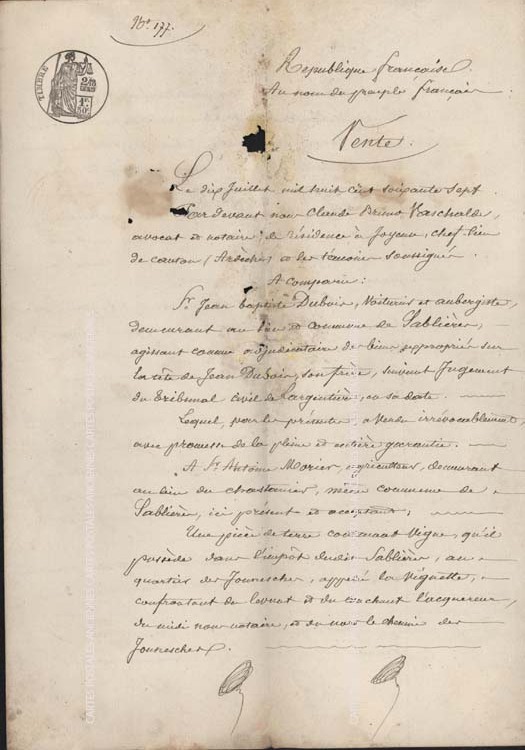 Nº 177.
TIMBRE
2/10
EN SUS
1F.
50C.
République française.
Au nom du peuple français.
Vente.
Le dix Juillet mil huit cent soixante sept
Par devant nous Claude Bruno Vaschalde,
avocat et notaire, de résidence à Joyeuse, chef-lieu
de canton (Ardèche) et les témoins soussignés
A comparu:
Sr. Jean baptiste Dubois, Voiturier et aubergiste,
demeurant au lieu et commune de Sablières,
agissant comme adjudicataire des biens expropriés sur
la tête de Jean Dubois, son frère, suivant Jugement
du Tribunal civil de Largentière, en sa date.
Lequel, par les présentes, a vendu irrévocablement,
avec promesse de la pleine et entière garantie.
A Sr. Antoine Morier, agriculteur, demeurant
au lieu du chastanier, même commune de
Sablières, ici présent et acceptant;
Une pièce de terre ci-devant Vigne, qu'il
possède dans l'impôt dudit Sablières, au
quartier des Jounesches, appelée la Vignette,
confrontant du levant et du couchant l'acquéreur,
du midi nous notaire, et du nord le chemin des
Jounesches.
CARTES POSTALES ANCIENNES